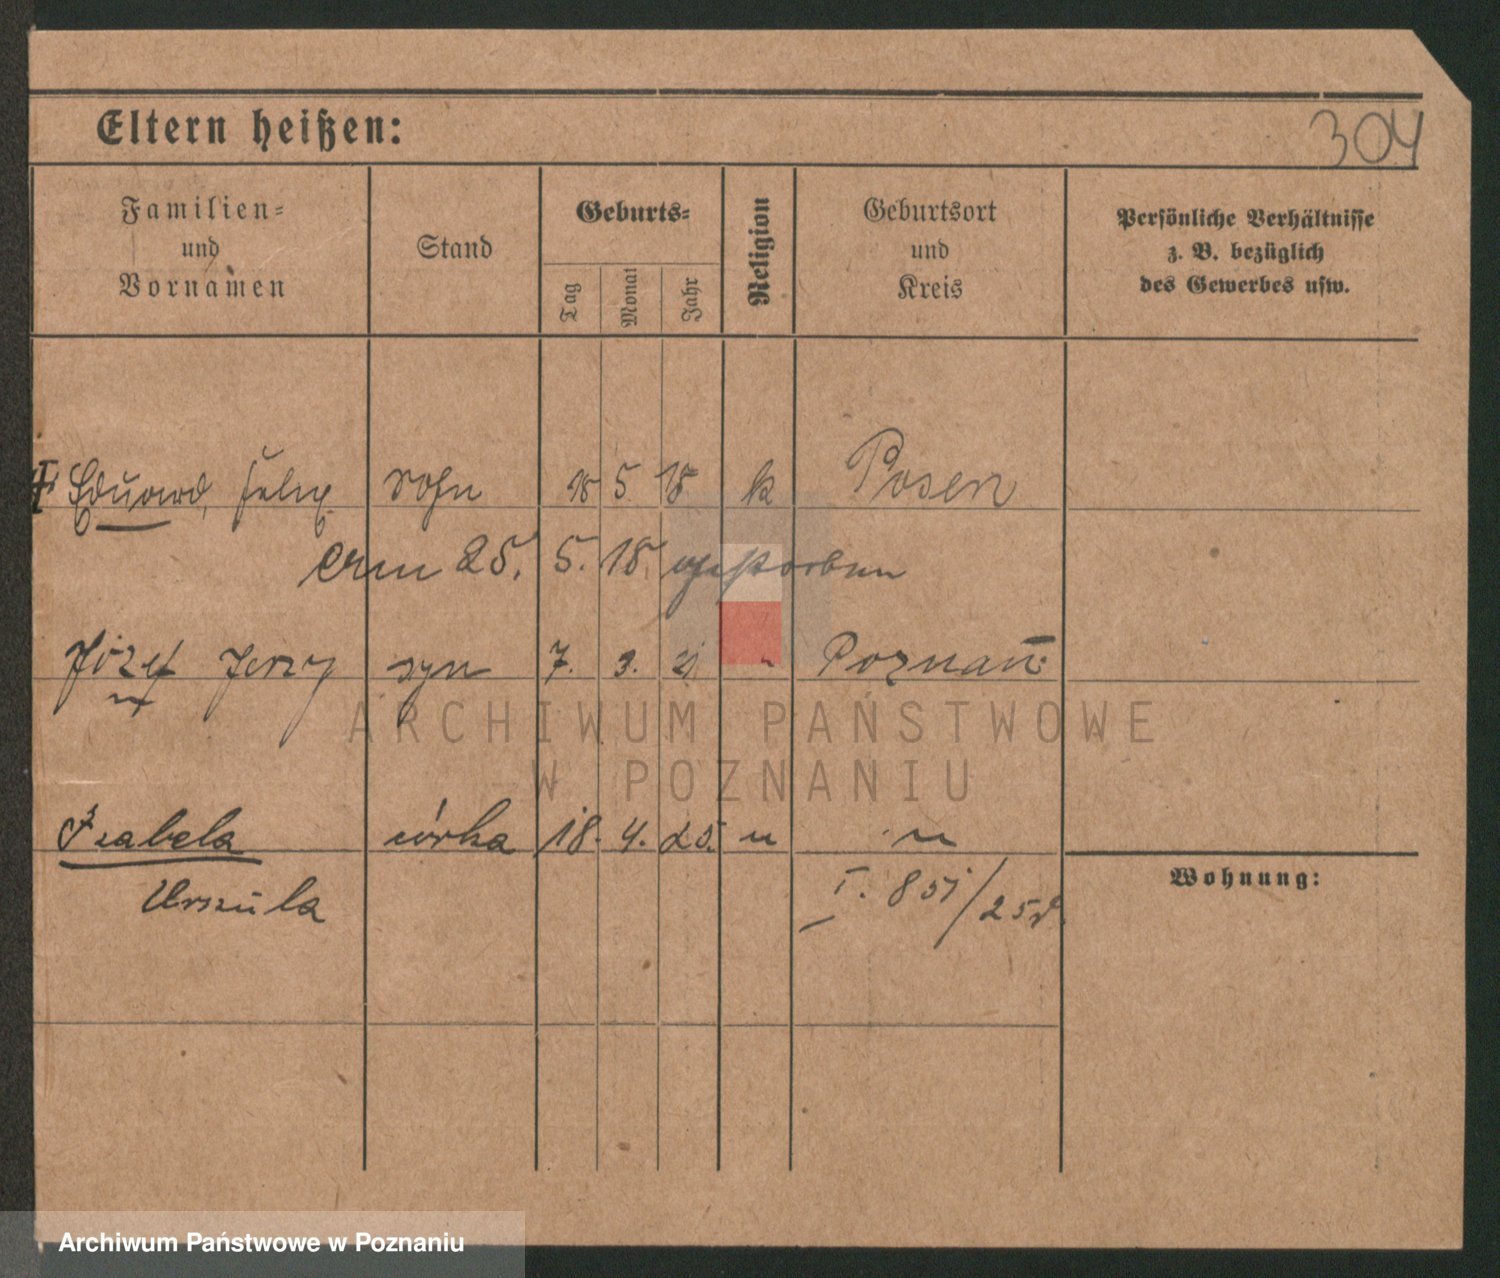 Eltern heißen:
304
Familien=
und
Vornamen
Stand
Geburts=
Tag
Monat
Jahr
Religion
Geburtsort
und
Kreis
Persönliche Verhältnisse
z. B. bezüglich
des Gewerbes usw.
Eduard, Felix Sohn 18 5. 18. k Posen
am 25. 5. 18. gestorben
Józef Jerzy syn 7. 3. 21 " Poznań
Izabela córka 18. 4. 25. " "
Urszula
I. 851/25
Wohnung:
ARCHIWUM PAŃSTWOWE
W POZNANIU
Archiwum Państwowe w Poznaniu